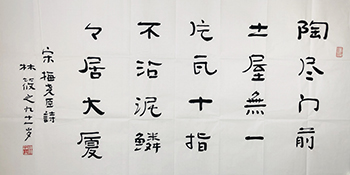 陶尽门前
土屋無一
片瓦十指
不沾泥鱗
々居大廈
宋梅尧臣詩
林筱之九十一岁